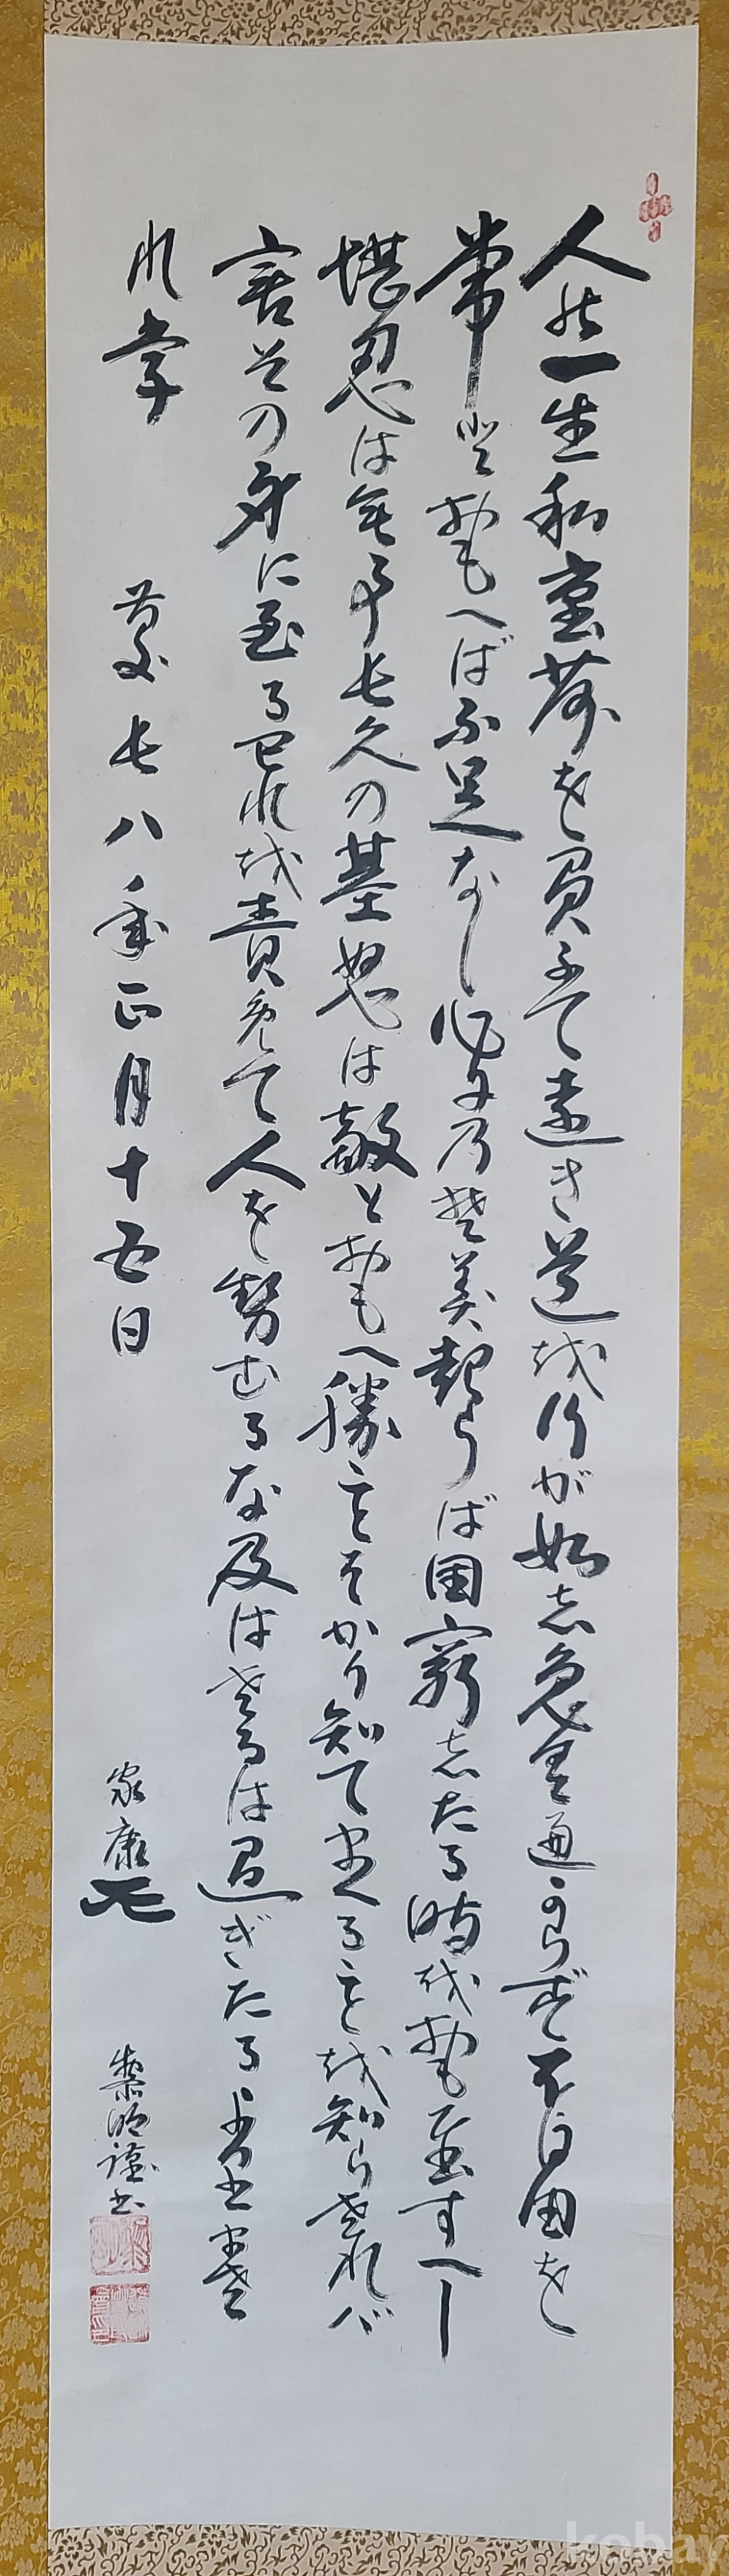 人の一生は重荷を負うて遠き道を行が如し急ぐ遍からず不自由を
常とおもへば不足なし心に乃ぞみ起らば困窮したる時をおもひ出すべし
堪忍は無事長久の基怒は敵とおもへ勝ことばかり知て まくることを知らざれば
害その身に至るおのれを責めて人を責むるな及ばざるは過ぎたるよりまさ
れり
慶長八年正月十五日
家康
謹書
kebay